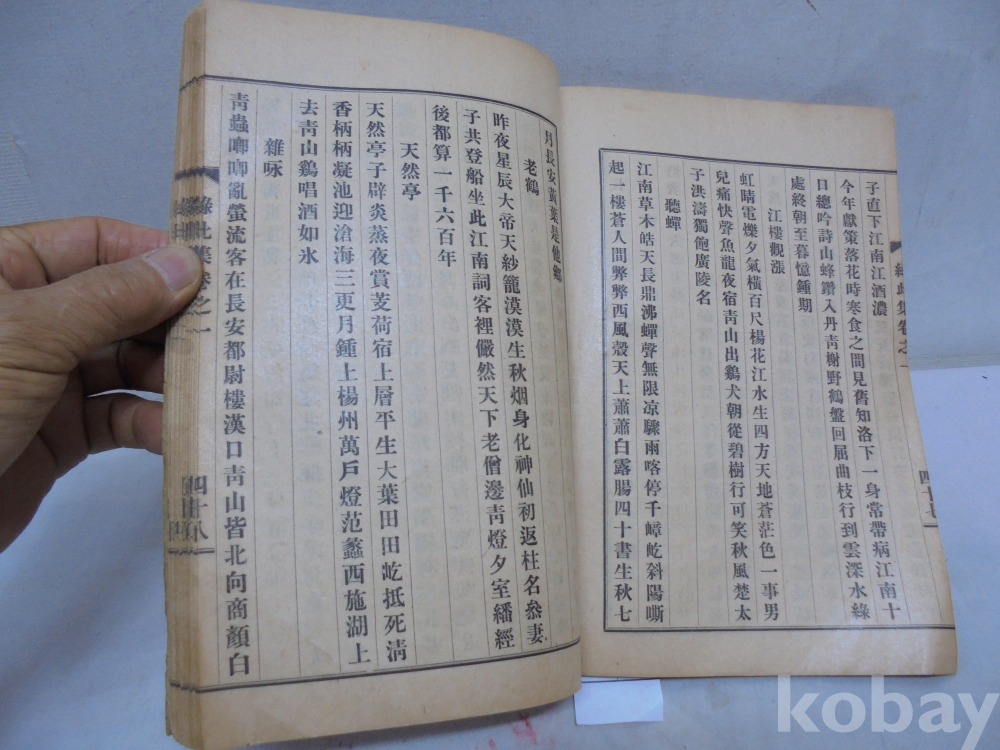 子直下江南江酒濃
今年獻策落花時寒食之間見舊知洛下一身常帶病江南十
日總吟詩山蜂鑽入丹靑榭野鶴盤回屈曲枝行到雲深水綠
處終朝至暮憶鍾期
江樓觀漲
虹晴電爍夕氣橫百尺楊花江水生四方天地蒼茫色一事男
兒痛快聲魚龍夜宿靑山出鷄犬朝從碧樹行可笑秋風楚太
子洪濤獨飽廣陵名
聽蟬
江南草木皓天長鼎沸蟬聲無限凉驟雨喀停千嶂屹斜陽嘶
起一樓蒼人間弊弊西風殼天上蕭蕭白露腸四十書生秋七
四十七
月長安黃葉是他鄉
老鶴
昨夜星辰大帝天紗籠漠漠生秋烟身化神仙初返柱名叅妻
子共登船坐此江南詞客裡儼然天下老僧邊靑燈夕室繙經
後都算一千六百年
天然亭
天然亭子辟炎蒸夜賞芰荷宿上層平生大葉田田屹抵死淸
香柄柄凝池迎滄海三更月鍾上楊州萬戶燈范蠡西施湖上
去靑山鷄唱酒如氷
雜咏
靑蟲喞喞亂螢流客在長安都尉樓漢口靑山皆北向商顏白
集卷之一
四十八
kobay